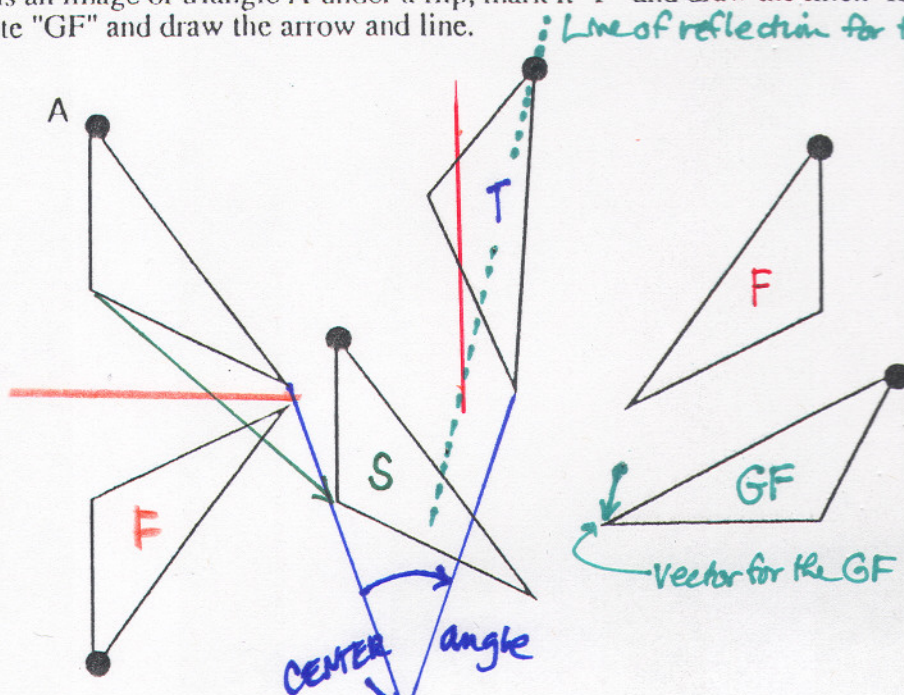 te "GF" and draw the arrow and line.
Line of reflection for
A
T
F
S
F
GF
vector for the GF
CENTER
angle